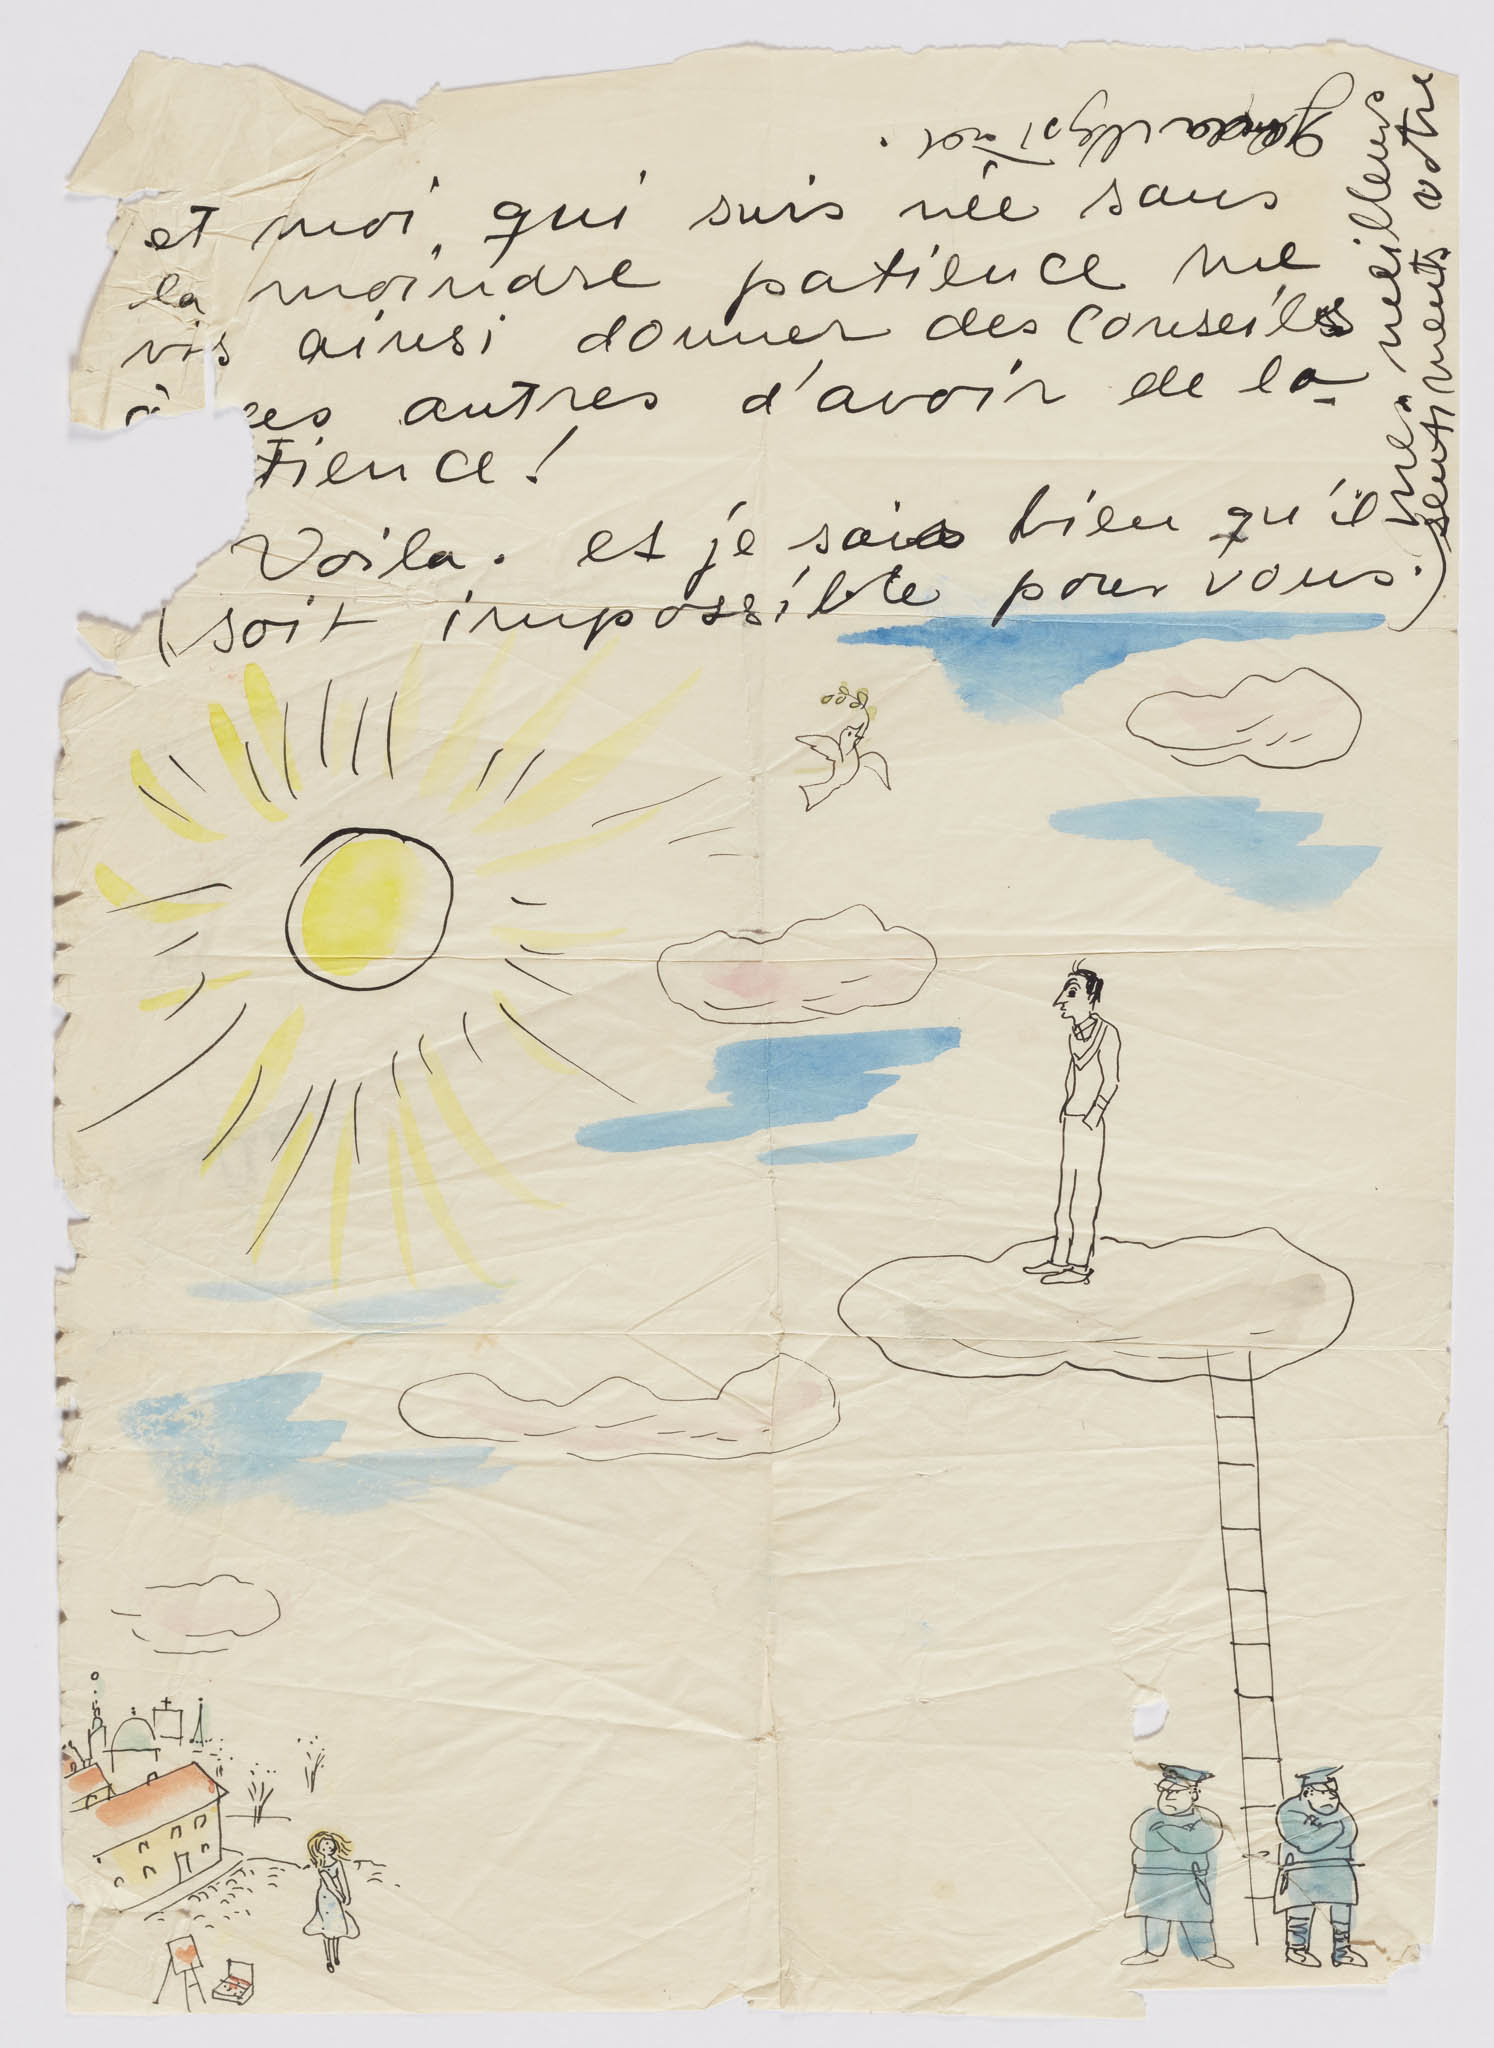 et moi, qui suis née sans
la moindre patience me
vis ainsi donner des conseils
à es autres d'avoir de la
tience!
Voila. et je sais bien qu'il
(soit impossible pour vous.)
mes meilleurs
sentiments votre